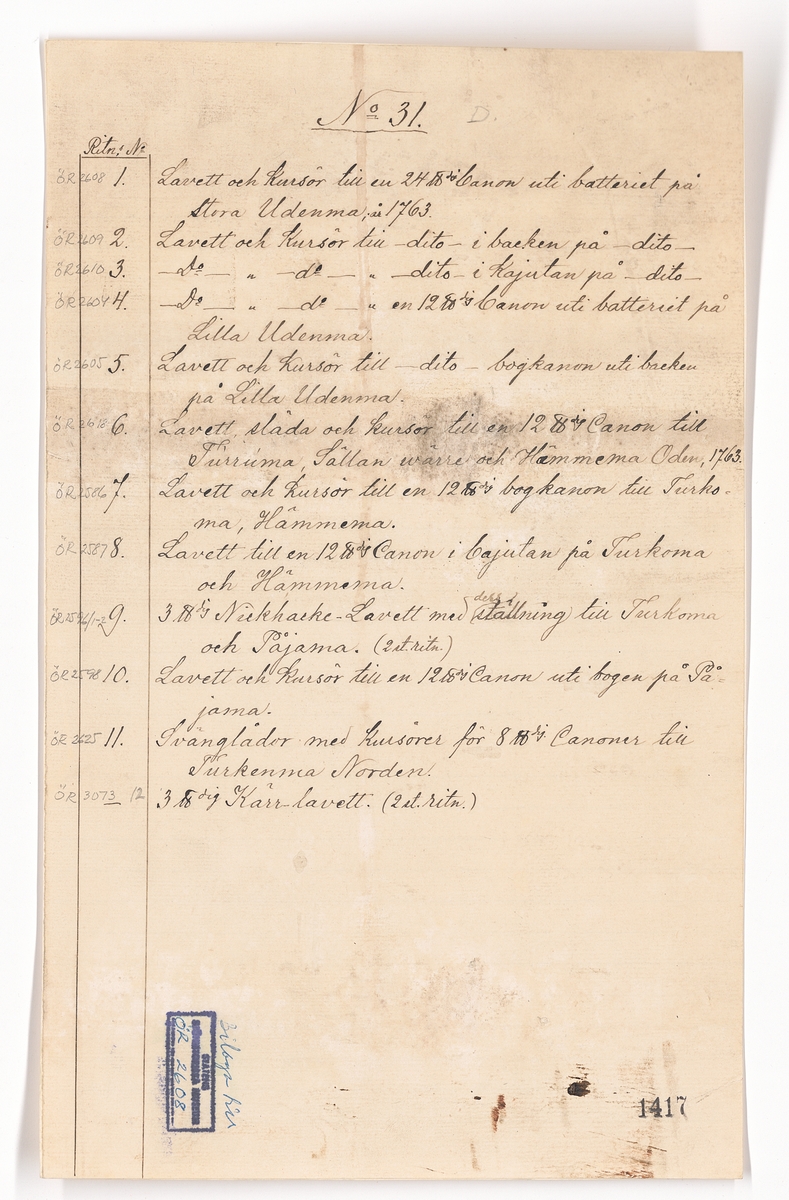 No 31. D.
Ritn.s No
ÖR 2608 1. Lavett och Kursör till en 24 ℔dig Canon uti batteriet på
stora Udenma, år 1763.
ÖR 2609 2. Lavett och Kursör till – dito – i backen på – dito –
ÖR 2610 3. – Do – „ – do – „ – dito – i Kajutan på – dito –
ÖR 2604 4. – Do – „ – do – „ en 12 ℔dig Canon uti batteriet på
Lilla Udenma.
ÖR 2605 5. Lavett och Kursör till – dito – bogkanon uti backen
på Lilla Udenma.
ÖR 6. Lavett, släda och kursör till en 12 ℔dig Canon till
Turruma, Sällan wärre och Hämmema Oden, 1763.
ÖR 2586 7. Lavett och Kursör till en 12 ℔dig bogkanon till Turko-
ma, Hämmema.
ÖR 2587 8. Lavett till en 12 ℔dig Canon i Cajutan på Turkoma
och Hämmema.
ÖR 2596/1-2 9. 3 ℔dig Nickhacke-Lavett med dess ställning till Turkoma
och Påjama. (2 st. ritn.)
ÖR 2598 10. Lavett och Kursör till en 12 ℔dig Canon uti bogen på På-
jama.
ÖR 2625 11. Svänglådor med Kursörer för 8 ℔dig Canoner till
Turkenma Norden.
ÖR 3073 12 3 ℔dig Kärr-lavett. (2 st. ritn.)
ÖR 2608
1417